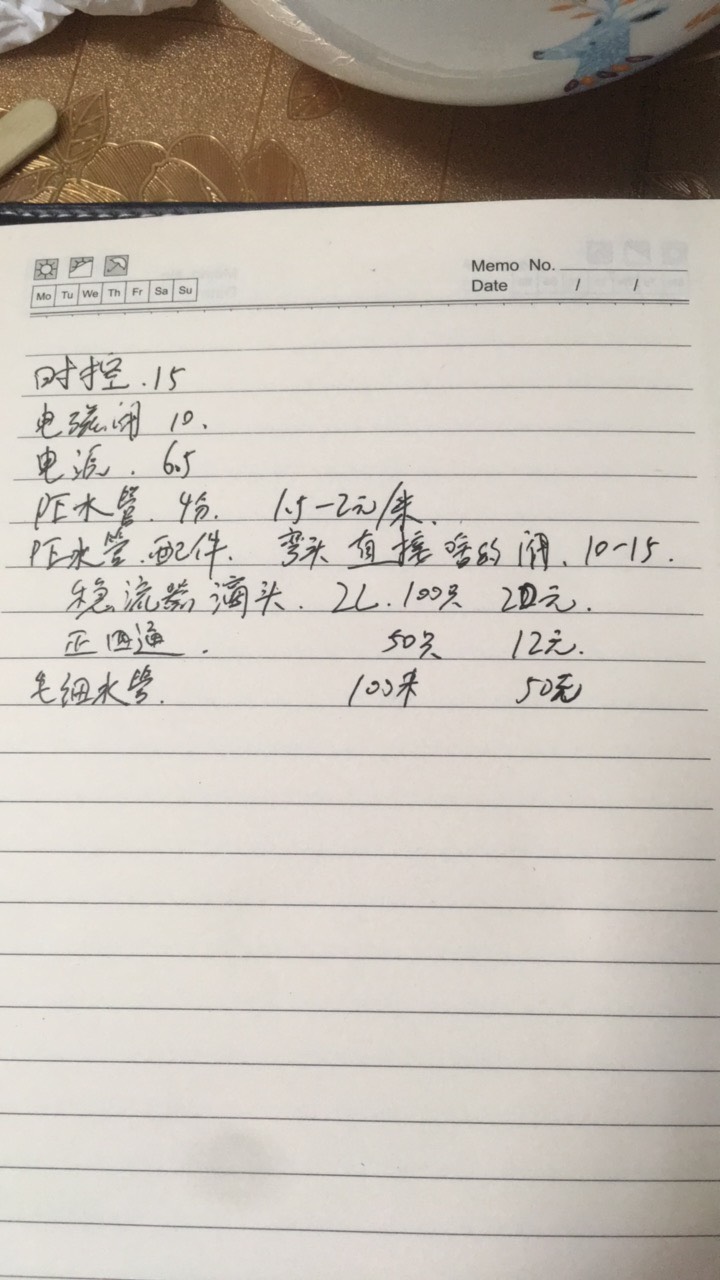 Memo No.
Mo Tu We Th Fr Sa Su
Date / /
时控.15
电磁阀 10.
电源. 6.5
PE水管. 4分. 1.5-2元/米.
PE水管.配件. 弯头 直接 啥的 阀. 10-15.
稳流器滴头. 2L.100只 20元.
正四通. 50只 12元.
毛细水管. 100米 50元